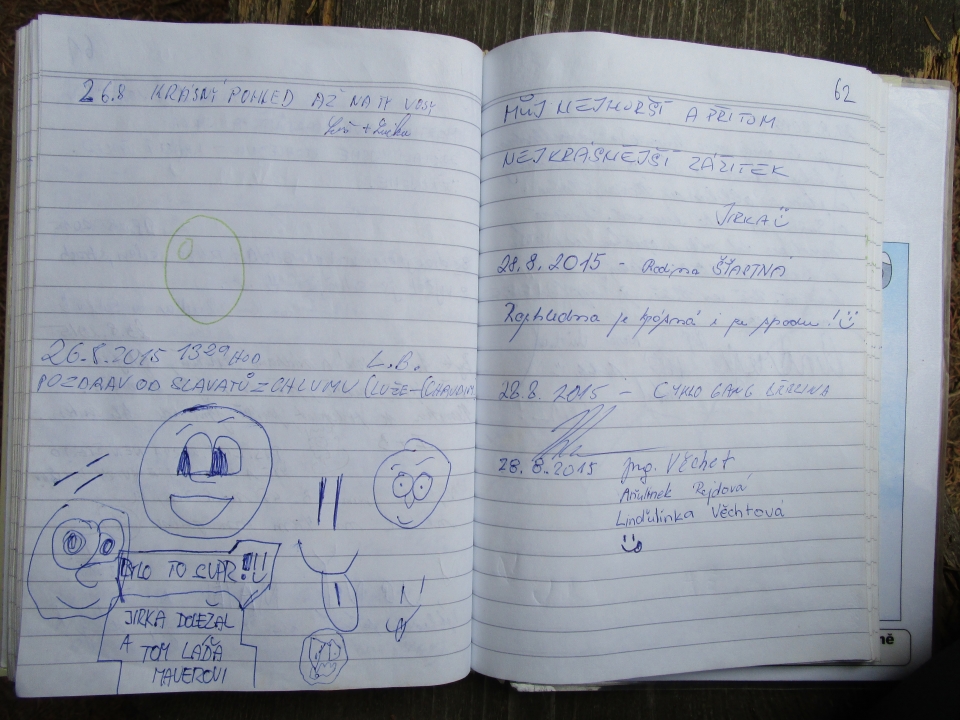 26.8 KRÁSNÝ POHLED AŽ NA TY VOSY
26.8.2015 1329 HOD L.B.
POZDRAV OD SLAVATŮ Z CHLUMU (LUŽE-
BYLO TO SUPR!!
JIRKA DOLEŽAL
A TOM LÁĎA
MAUEROVI
62
MŮJ NEJHORŠÍ A PŘITOM
NEJKRÁSNEJŠÍ ZÁŽITEK
JIRKA
28.8.2015 - Rodina ŠŤASTNÁ
Rozhledna je špásná i ze spodu!
28.8.2015 - CYKLO GANG
28.8.2015 Ing. Věchet
Aňulinek Rejdová
Linďulinka Věchtová
ně